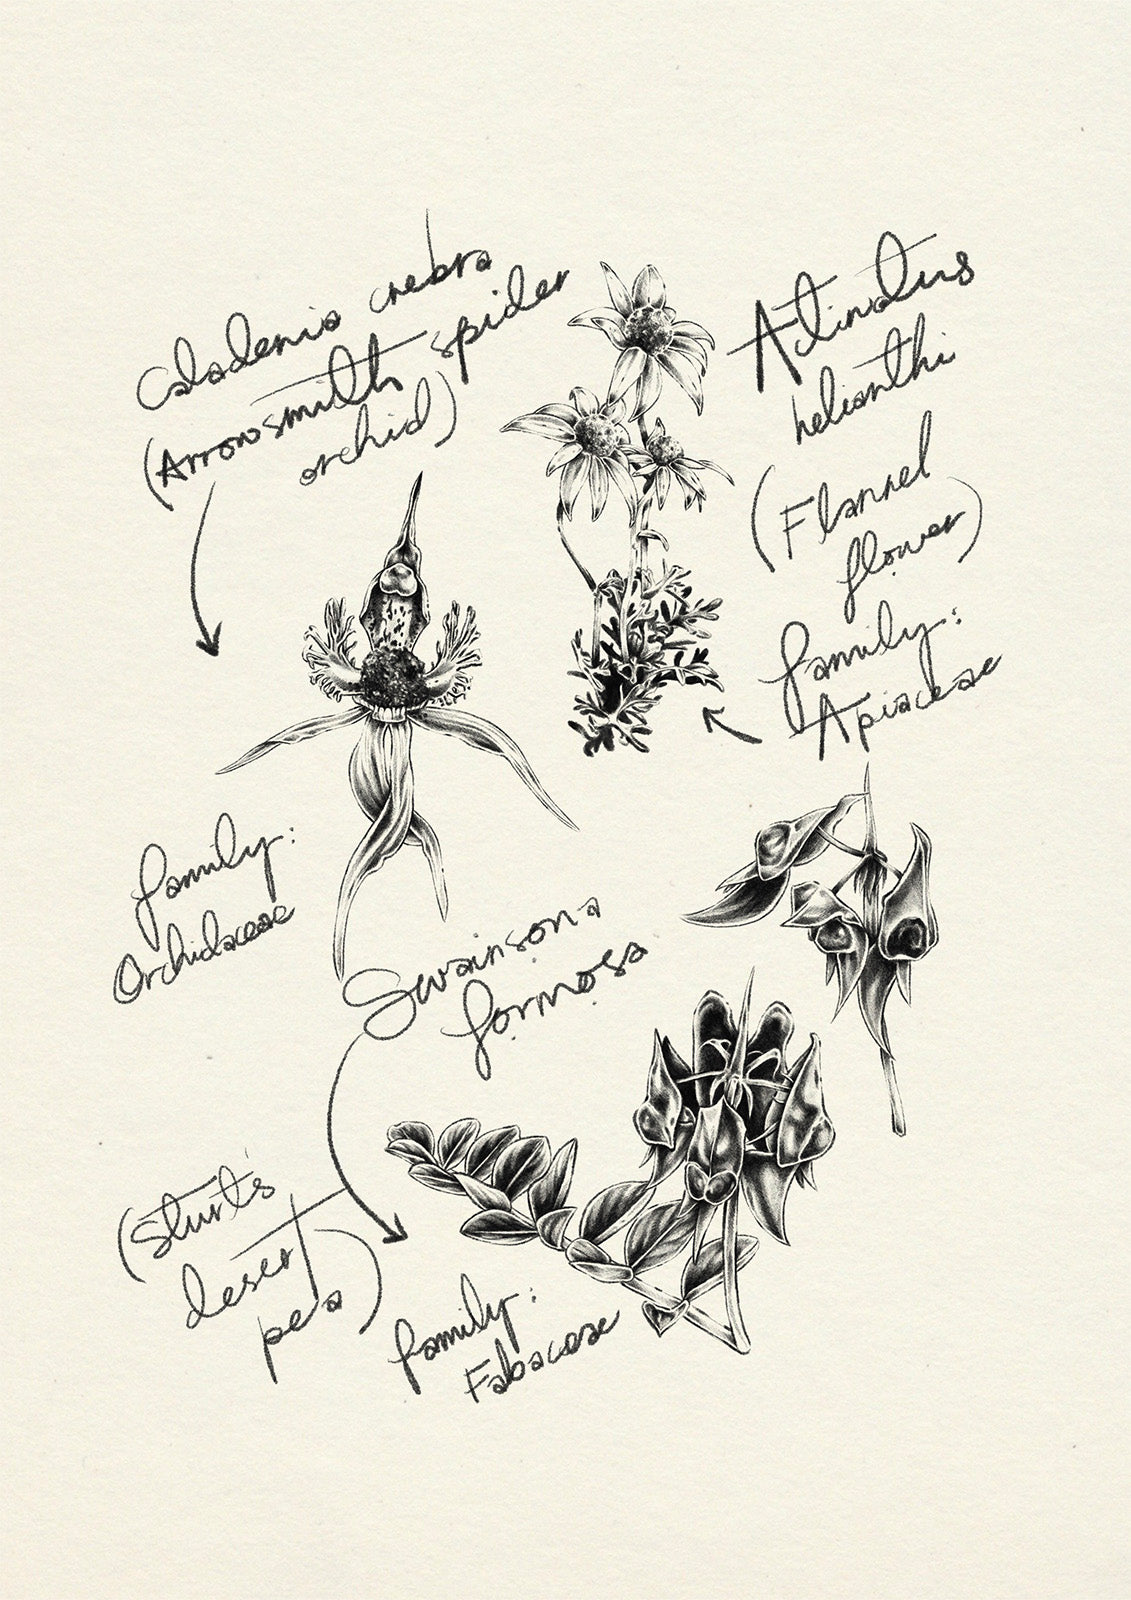 Caladenia crebra
(Arrowsmith spider
orchid)
family:
Orchidaceae
Actinotus
helianthi
(Flannel
flower)
family:
Apiaceae
Swainsona
formosa
(Sturt's
desert
pea)
family:
Fabaceae